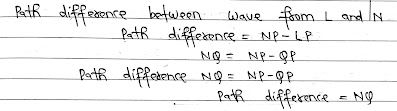 Path difference between wave from L and N
Path difference = NP - LP
NQ = NP - QP
Path difference NQ = NP - QP
Path difference = NQ